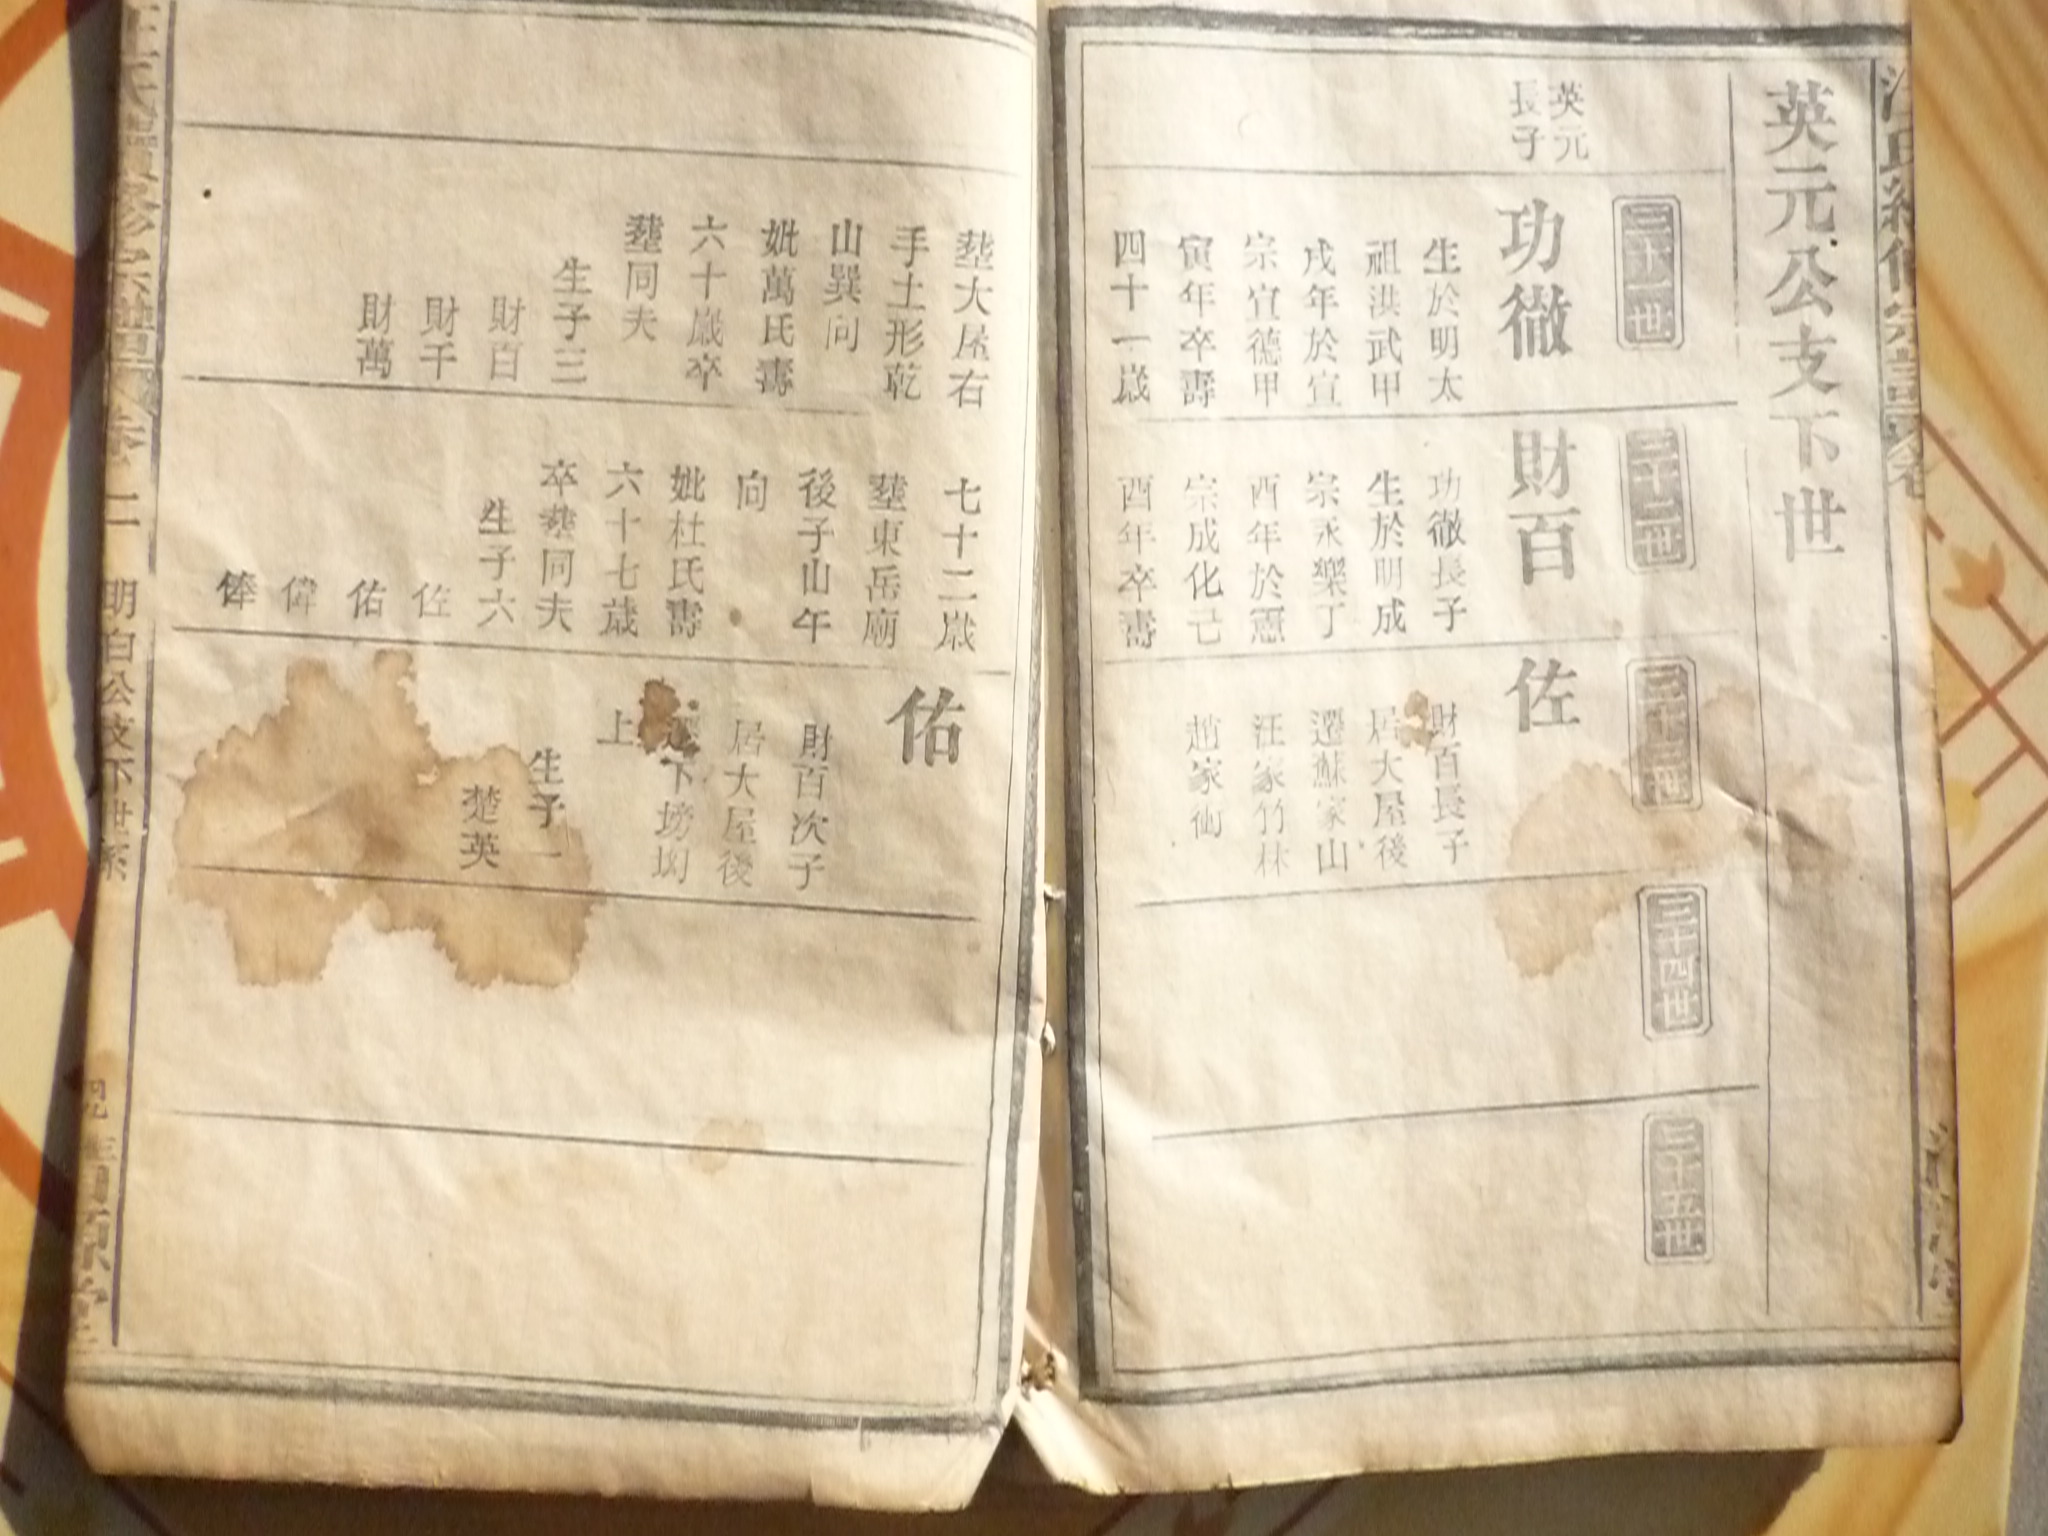 英元公支下世
三十一世
三十二世
三十三世
三十四世
三十五世
英元
長子
功徹
生於明太
祖洪武甲
戌年於宣
宗宣德甲
寅年卒壽
四十一歲
塟大屋右
手土形乾
山巽向
妣萬氏壽
六十歲卒
塟同夫
生子三
財百
財千
財萬
財百
功徹長子
生於明成
宗永樂丁
酉年於憲
宗成化己
酉年卒壽
七十二歲
塟東岳廟
後子山午
向
妣杜氏壽
六十七歲
卒塟同夫
生子六
佐
佑
偉
俸
佐
財百長子
居大屋後
遷蘇家山
汪家竹林
趙家衕
佑
財百次子
居大屋後
下塝坳
上
生子一
楚英
汪氏續修宗譜 卷二 明白公支下世系